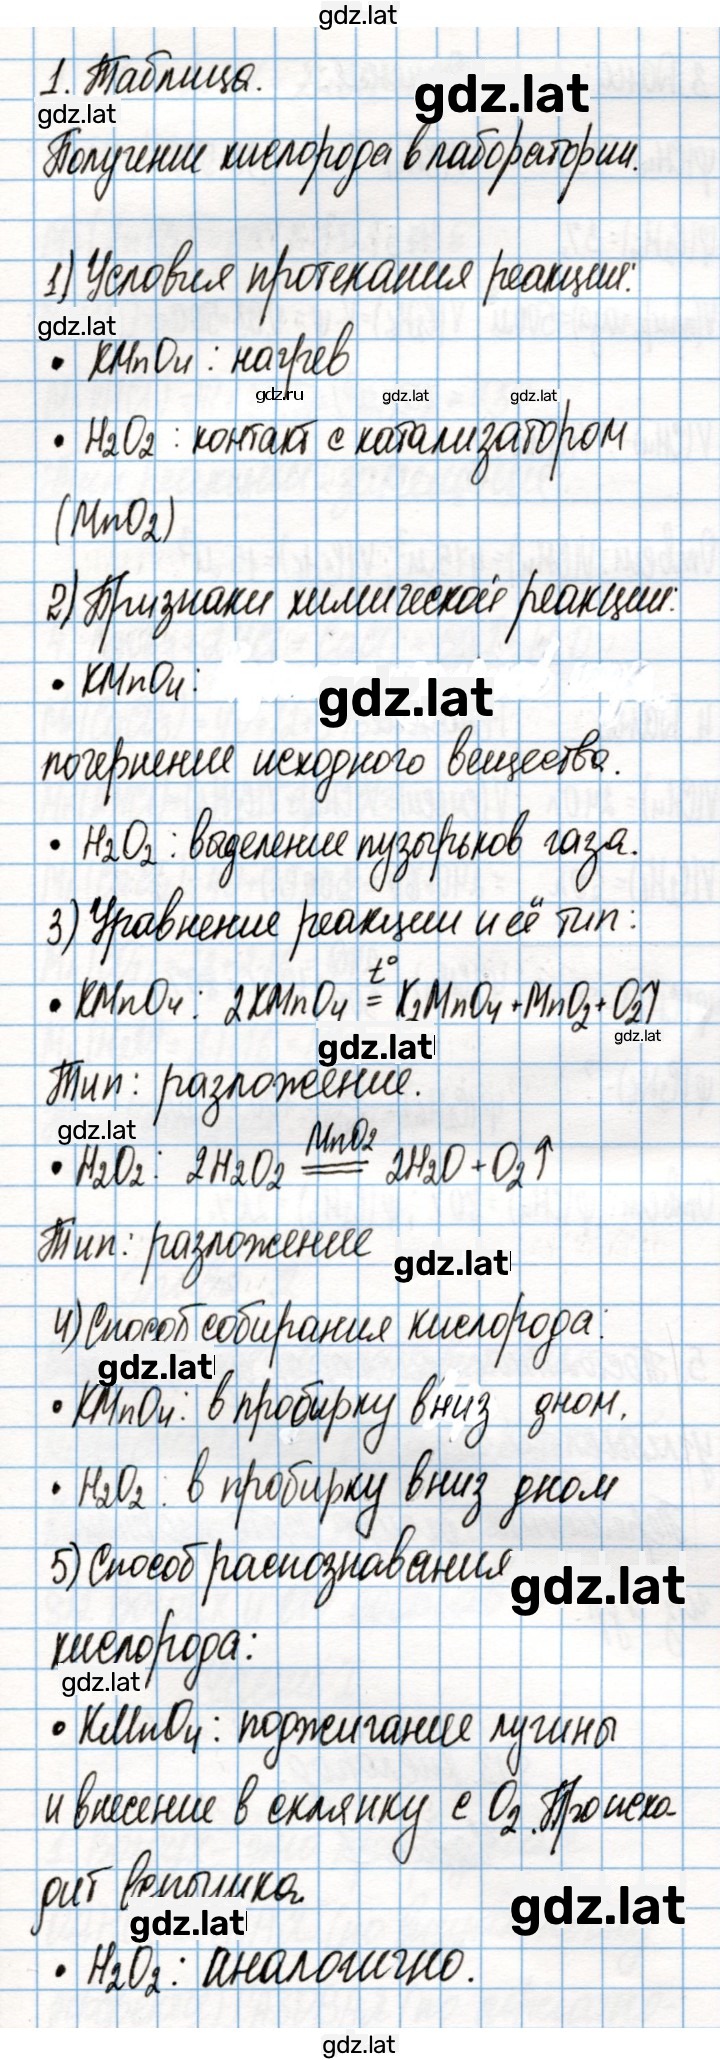 gdz.lat
1. Таблица.
gdz.lat
gdz.lat
Получение кислорода в лаборатории.
1) Условия протекания реакции:
gdz.lat
• KMnO4 : нагрев
gdz.ru gdz.lat gdz.lat
• H2O2 : контакт с катализатором
(MnO2)
2) Признаки химической реакции:
• KMnO4:
gdz.lat
почернение исходного вещества.
• H2O2 : выделение пузырьков газа.
3) Уравнение реакции и её тип:
• KMnO4 : 2KMnO4 t°= K2MnO4 + MnO2 + O2↑
gdz.lat gdz.lat
Тип: разложение.
gdz.lat
• H2O2 : 2H2O2 MnO2= 2H2O + O2↑
Тип: разложение
gdz.lat
4) Способ собирания кислорода:
gdz.lat
• KMnO4: в пробирку вниз дном.
• H2O2 : в пробирку вниз дном
5) Способ распознавания
gdz.lat
кислорода:
gdz.lat
• KMnO4 : поджигание лучины
и внесение в склянку с O2. Происхо-
дит вспышка.
gdz.lat gdz.lat
• H2O2 : аналогично.
gdz.lat